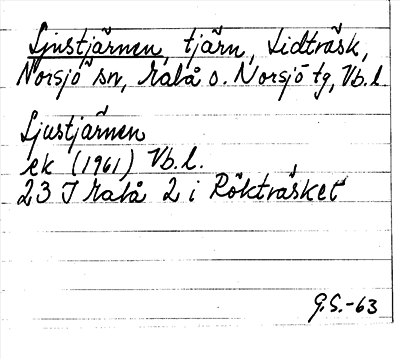 Ljustjärnen, tjärn, Lidträsk,
Norsjö sn, Malå o. Norsjö tg, Vb.l.
Ljustjärnen
ek (1961) Vb.l.
23 I Malå 2 i Rökträsket
G.S.-63